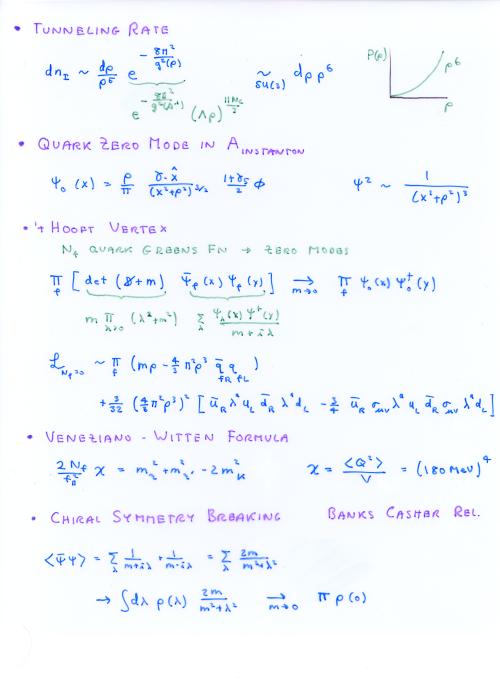 • TUNNELING RATE
dn_I ~ dρ/ρ^5 e^{-8π²/g²(ρ)} ~_{SU(2)} dρ ρ^6
P(ρ) ρ^6
e^{-8π²/g²(Λ^{-1})} (Λρ)^{11N_c/3} ρ
• QUARK ZERO MODE IN A_INSTANTON
ψ_0(x) = ρ/π γ·x̂/(x²+ρ²)^{3/2} (1+γ_5)/2 φ ψ² ~ 1/(x²+ρ²)³
• 't HOOFT VERTEX
N_f QUARK GREENS FN → ZERO MODES
∏_f [det (D̸+m) ψ̄_f(x) ψ_f(y)] →_{m→0} ∏_f ψ_0(x) ψ_0^†(y)
m ∏_{λ>0} (λ²+m²) Σ_λ ψ_λ(x) ψ^†(y)/(m+iλ)
L_{N_f>0} ~ ∏_f (mρ - 4/3 π²ρ³ q̄_{fR} q_{fL})
+ 3/32 (4/3 π²ρ³)² [ū_R λ^a u_L d̄_R λ^a d_L - 3/4 ū_R σ_{μν} λ^a u_L d̄_R σ_{μν} λ^a d_L]
• VENEZIANO - WITTEN FORMULA
2N_f/f_π² χ = m_η² + m_η'² - 2m_K² χ = <Q²>/V = (180 MeV)^4
• CHIRAL SYMMETRY BREAKING BANKS CASHER REL.
<ψ̄ψ> = Σ_λ 1/(m+iλ) + 1/(m-iλ) = Σ_λ 2m/(m²+λ²)
→ ∫dλ ρ(λ) 2m/(m²+λ²) →_{m→0} π ρ(0)